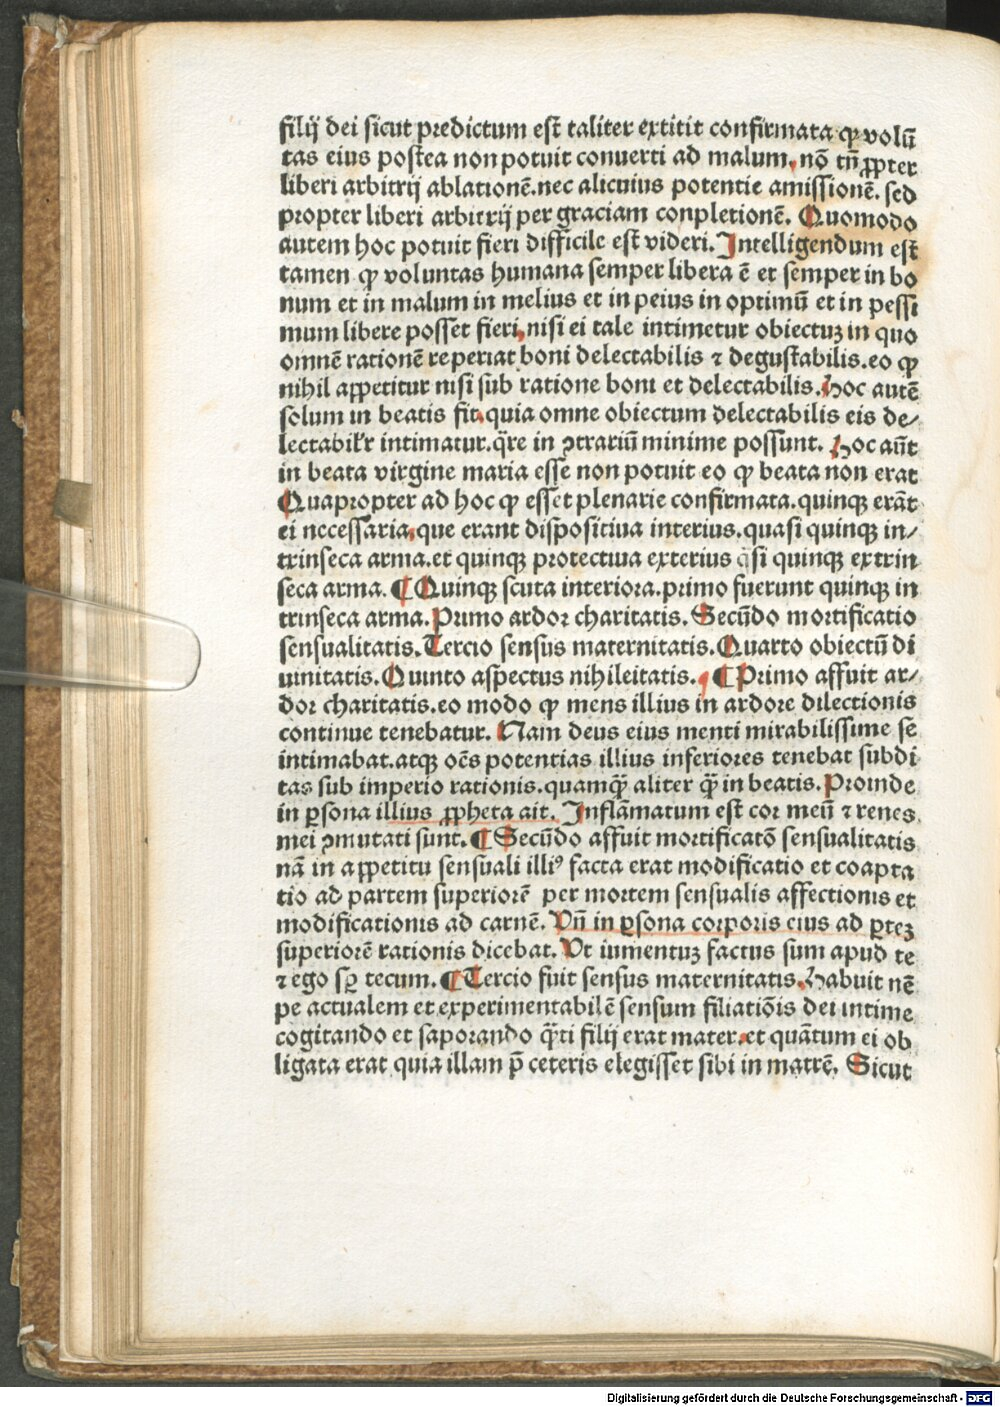 filij dei sicut predictum est taliter extitit confirmata ꝙ volū
tas eius postea non potuit conuerti ad malum, nō tn̄ ꝓpter
liberi arbitrij ablationē. nec alicuius potentie amissionē. sed
propter liberi arbitrij per graciam conpletionē. Quomodo
autem hoc potuit fieri difficile est videri. Intelligendum est
tamen ꝙ voluntas humana semper libera ē et semper in bo
num et in malum in melius et in peius in optimū et in pessi
mum libere posset fieri, nisi ei tale intimetur obiectuꝫ in quo
omnē rationē reperiat boni delectabilis ⁊ degustabilis. eo ꝙ
nihil appetitur nisi sub ratione boni et delectabilis. Hoc autē
solum in beatis fit, quia omne obiectum delectabilis eis de⸗
lectabil'r intimatur. q̄re in ꝯtrariū minime possunt. Hoc aūt
in beata virgine maria esse non potuit eo ꝙ beata non erat
Quapropter ad hoc ꝙ esset plenarie confirmata. quinqꝫ erāt
ei necessaria, que erant dispositiua interius. quasi quinqꝫ in⸗
trinseca arma. et quinqꝫ protectiua exterius q̄si quinqꝫ extrin
seca arma. ¶ Quinqꝫ scuta interiora. primo fuerunt quinqꝫ in
trinseca arma. Primo ardor charitatis. Secūdo mortificatio
sensualitatis. Tercio sensus maternitatis. Quarto obiectū di
uinitatis. Quinto aspectus nihileitatis. ¶ Primo affuit ar⸗
dor charitatis. eo modo ꝙ mens illius in ardore dilectionis
continue tenebatur. Nam deus eius menti mirabilissime se
intimabat. atqꝫ oēs potentias illius inferiores tenebat subdi
tas sub imperio rationis. quamq̄ȝ aliter q̄ȝ in beatis. Proinde
in ꝑsona illius ꝓpheta ait. Inflāmatum est cor meū ⁊ renes
mei ꝯmutati sunt. ¶ Secūdo affuit mortificatō sensualitatis
nā in appetitu sensuali illiꝰ facta erat modificatio et coapta
tio ad partem superiorē per mortem sensualis affectionis et
modificationis ad carnē. Vn̄ in ꝑsona corporis eius ad ꝑteꝫ
superiorē rationis dicebat. Vt iumentuꝫ factus sum apud te
⁊ ego sꝑ tecum. ¶ Tercio fuit sensus maternitatis. Habuit nē
pe actualem et experimentabilē sensum filiatiōis dei intime
cogitando et saporando q̄ȝti filij erat mater. et quātum ei ob
ligata erat quia illam p̄ ceteris elegisset sibi in matrē. Sicut
Digitalisierung gefördert durch die Deutsche Forschungsgemeinschaft - DFG